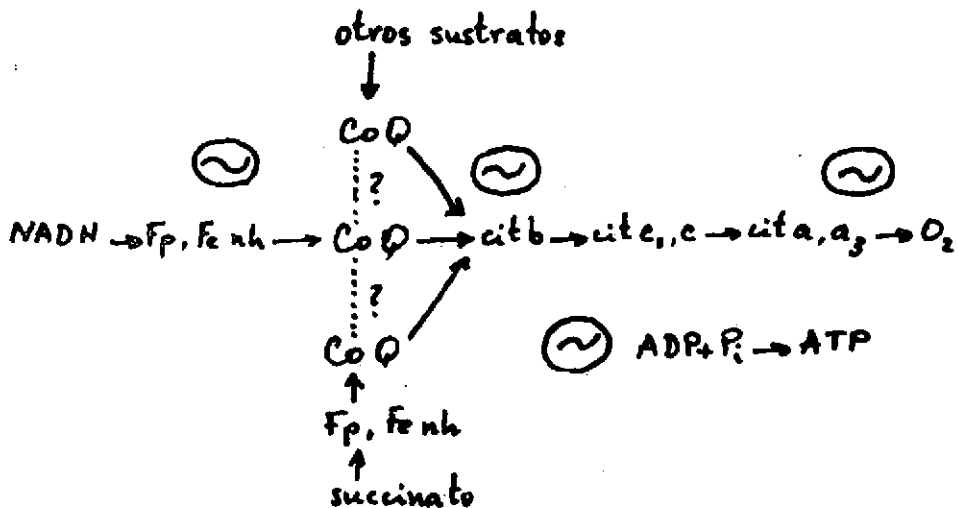 otros sustratos
CoQ
~ ~ ~
?
NADH → Fp, Fe nh → CoQ → cit b → cit c₁, c → cit a, a₃ → O₂
?
CoQ
~ ADP + Pi → ATP
Fp, Fe nh
succinato